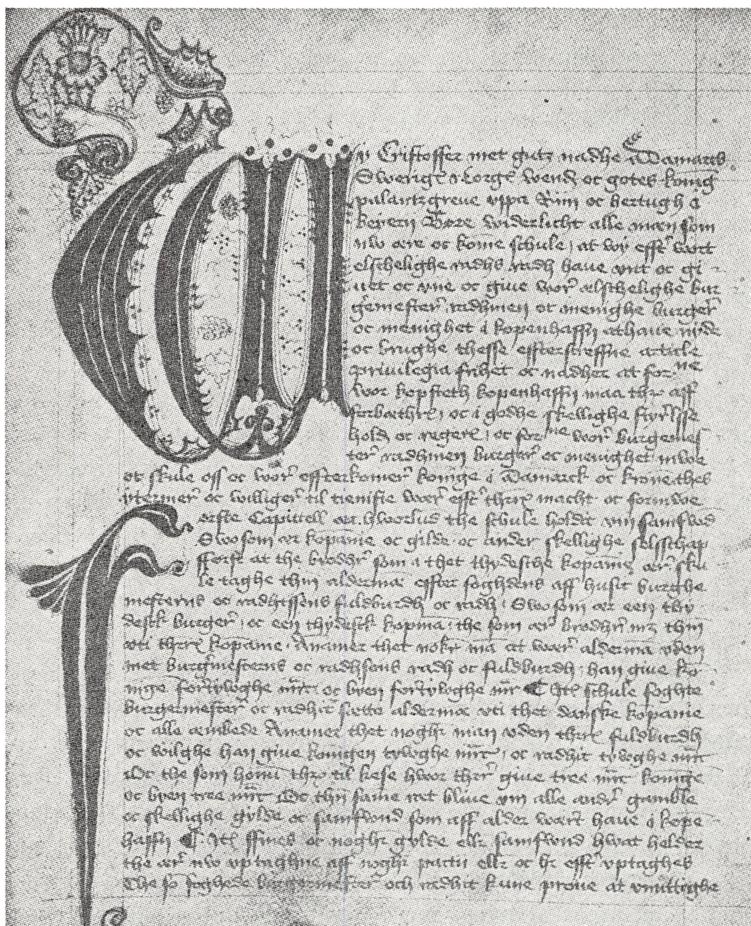 Wy Cristoffer met gutz nadhe i Damarcks
Swerigs Norgs wends oc gotes konig
palantzgreve vpa Rin oc hertugh i
beyern Gøre widerlicht alle mæn som
nw ære oc kome schule, at wy effter wort
elschelighe radhs radh have vnt oc gi
uet oc vne oc give wor elschelighe bur
gemester radhmen oc menighe burger
oc menighet i kopenhaffn at have nyde
oc brughe thesse effterscreffne article
privilegia frihet oc nadher at forne
wor kopsteth kopenhaffn maa ther aff
forbæthres, oc i godhe skellighe styrlsse
holds oc regeres, oc forne wor burgemes
ter radhmen burger oc menighet mwe
oc skule oss oc wor effterkomer konige i Damarck oc krone thes
ytermer oc williger til tieniste wære effter there macht oc formwe
ørste Capittell ær hworlud the schule holdes vm samfwd
Swo som ær kopanie oc gilde oc ander skellighe selsschap
fførst at the brødher som i thet thydesche kopanie ær sku
le taghe thin alderman effter soghdens aff husit burghe
mesterns oc radhissens fuldburdh oc radh, Swo som ær een thy
desck burger, oc een thydesck kopma, the som ær brødher mz thm
vti there kopanie, Anamer thet nokr man at wær alderma vden
met burgmesterns oc radhsens radh oc fuldburdh, han give ko
nige fortyloghe mrc oc byen fortyloghe mrc Item schule foghte
burgemester oc radhit sætte alderman vti thet danske kopanie
oc alle æmbede Anamer thet noghr man vden there fuldburdh
oc wilghe han give konigen tyloghe mrc, oc radhit tyloghe mrc
Oc the som honum ther til kese hwor ther give tree mrc konige
oc byen tree mrc Oc thn same ret blive vm alle andr gamble
oc skellighe gylde oc samfwnd som aff alder wært have i kope
haffn Item ffines oc noghr gylde ellr samfwnd hwat holder
the ær nw vptaghne aff noghr partn ellr oc hr effter vptaghes
The so foghede burgermester och radhit kune prøve at vnuttighe